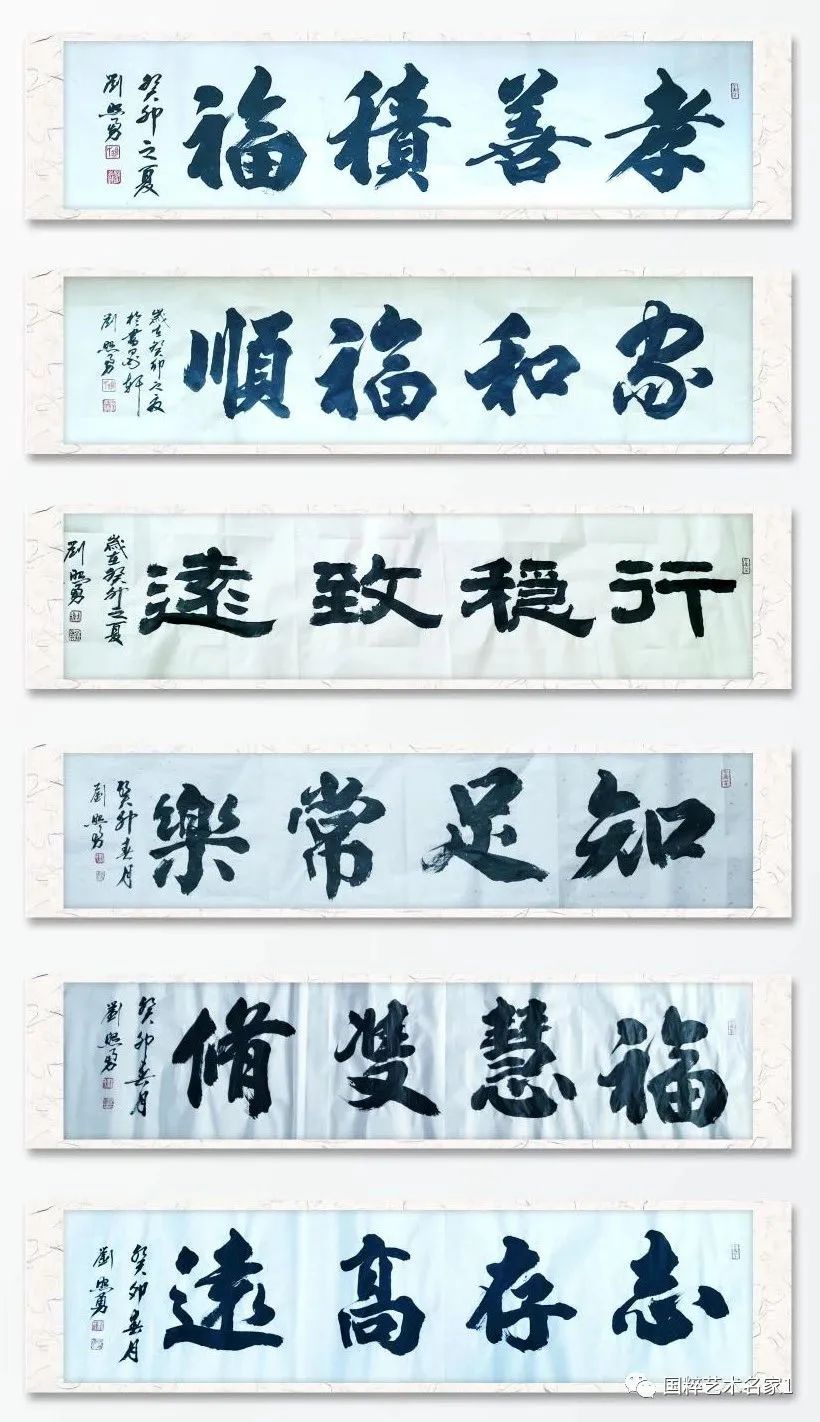 孝善積福
癸卯之夏
劉照勇
家和福順
歲在癸卯之夏
劉照勇
行穩致遠
歲在癸卯之夏
劉照勇
知足常樂
癸卯春月
劉照勇
福慧雙脩
癸卯春月
劉照勇
志存高遠
癸卯春月
劉照勇
国粹艺术名家1